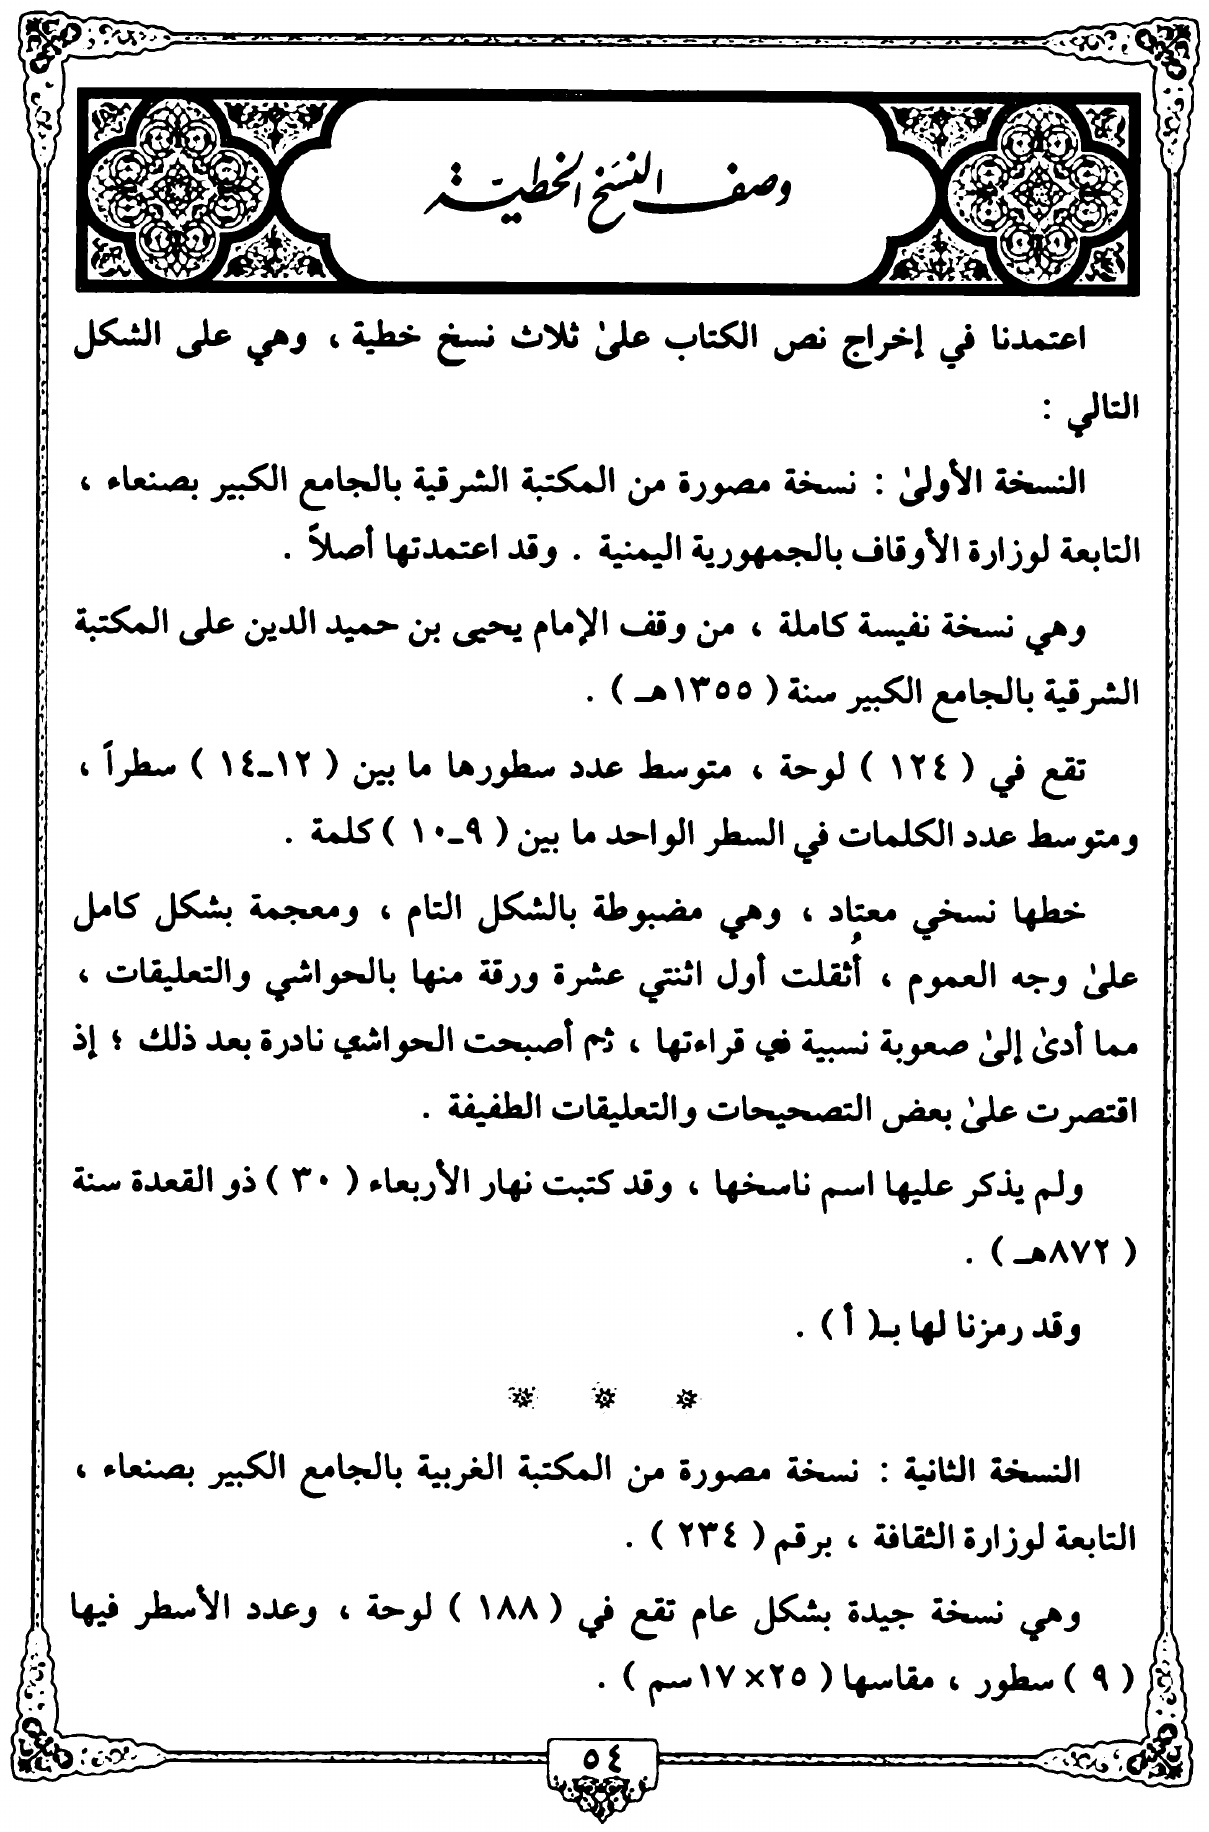 وصف النسخ الخطية
اعتمدنا في إخراج نص الكتاب علىٰ ثلاث نسخ خطية ، وهي على الشكل
التالي :
النسخة الأولىٰ : نسخة مصورة من المكتبة الشرقية بالجامع الكبير بصنعاء ،
التابعة لوزارة الأوقاف بالجمهورية اليمنية . وقد اعتمدتها أصلاً .
وهي نسخة نفيسة كاملة ، من وقف الإمام يحيى بن حميد الدين على المكتبة
الشرقية بالجامع الكبير سنة ( ١٣٥٥هـ ) .
تقع في ( ١٢٤ ) لوحة ، متوسط عدد سطورها ما بين ( ١٢ـ١٤ ) سطراً ،
ومتوسط عدد الكلمات في السطر الواحد ما بين ( ٩ـ١٠ ) كلمة .
خطها نسخي معتاد ، وهي مضبوطة بالشكل التام ، ومعجمة بشكل كامل
علىٰ وجه العموم ، أُثقلت أول اثنتي عشرة ورقة منها بالحواشي والتعليقات ،
مما أدىٰ إلىٰ صعوبة نسبية في قراءتها ، ثم أصبحت الحواشي نادرة بعد ذلك ؛ إذ
اقتصرت علىٰ بعض التصحيحات والتعليقات الطفيفة .
ولم يذكر عليها اسم ناسخها ، وقد كتبت نهار الأربعاء ( ٣٠ ) ذو القعدة سنة
( ٨٧٢هـ ) .
وقد رمزنا لها بـ( أ ) .
النسخة الثانية : نسخة مصورة من المكتبة الغربية بالجامع الكبير بصنعاء ،
التابعة لوزارة الثقافة ، برقم ( ٢٣٤ ) .
وهي نسخة جيدة بشكل عام تقع في ( ١٨٨ ) لوحة ، وعدد الأسطر فيها
( ٩ ) سطور ، مقاسها ( ٢٥×١٧سم ) .
٥٤